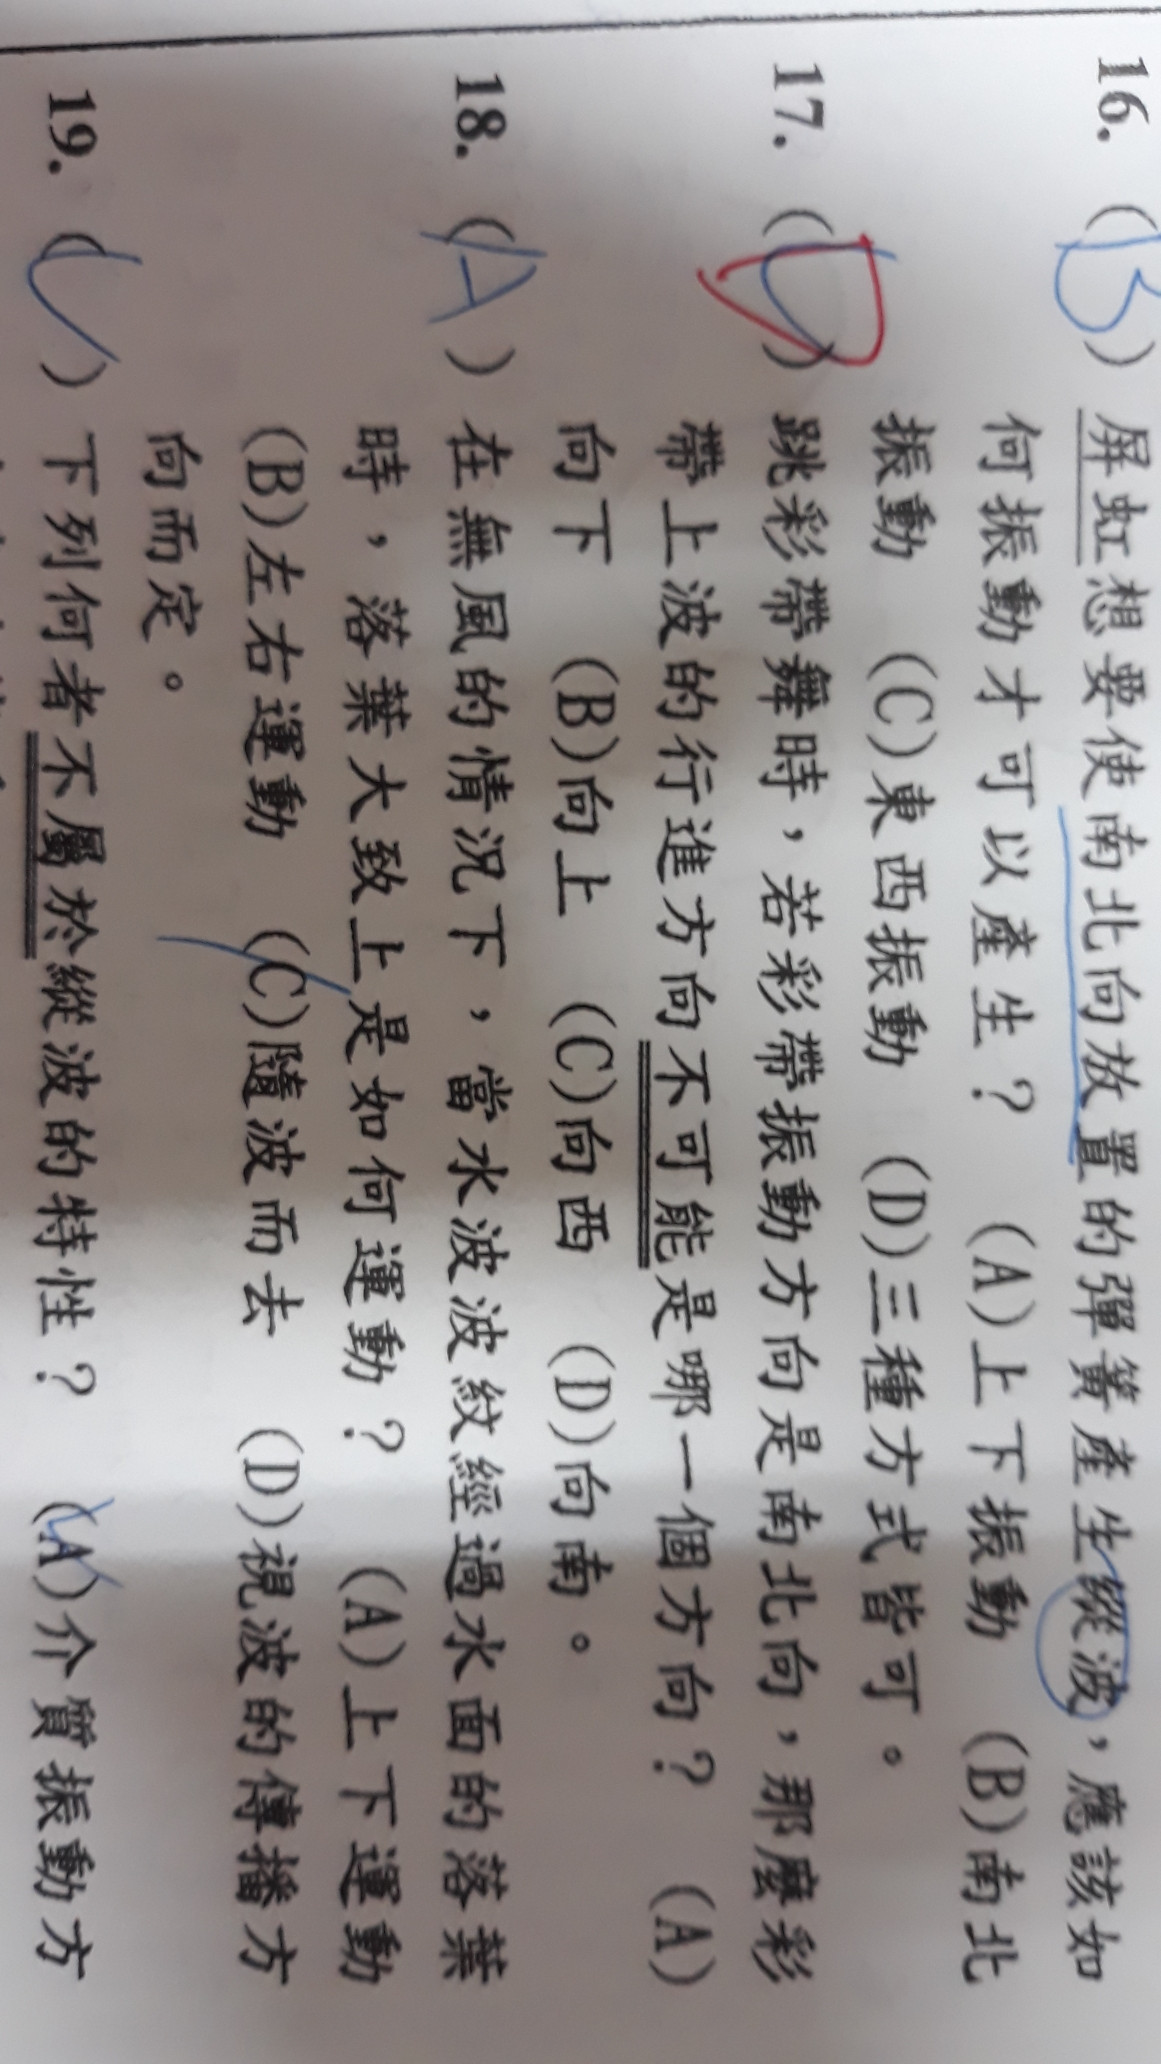 16. (B) 屏虹想要使南北向放置的彈簧產生縱波，應該如
何振動才可以產生？ (A)上下振動 (B)南北
振動 (C)東西振動 (D)三種方式皆可。
17. (D) 跳彩帶舞時，若彩帶振動方向是南北向，那麼彩
帶上波的行進方向不可能是哪一個方向？ (A)
向下 (B)向上 (C)向西 (D)向南。
18. (A) 在無風的情況下，當水波波紋經過水面的落葉
時，落葉大致上是如何運動？ (A)上下運動
(B)左右運動 (C)隨波而去 (D)視波的傳播方
向而定。
19. (C) 下列何者不屬於縱波的特性？ (A)介質振動方